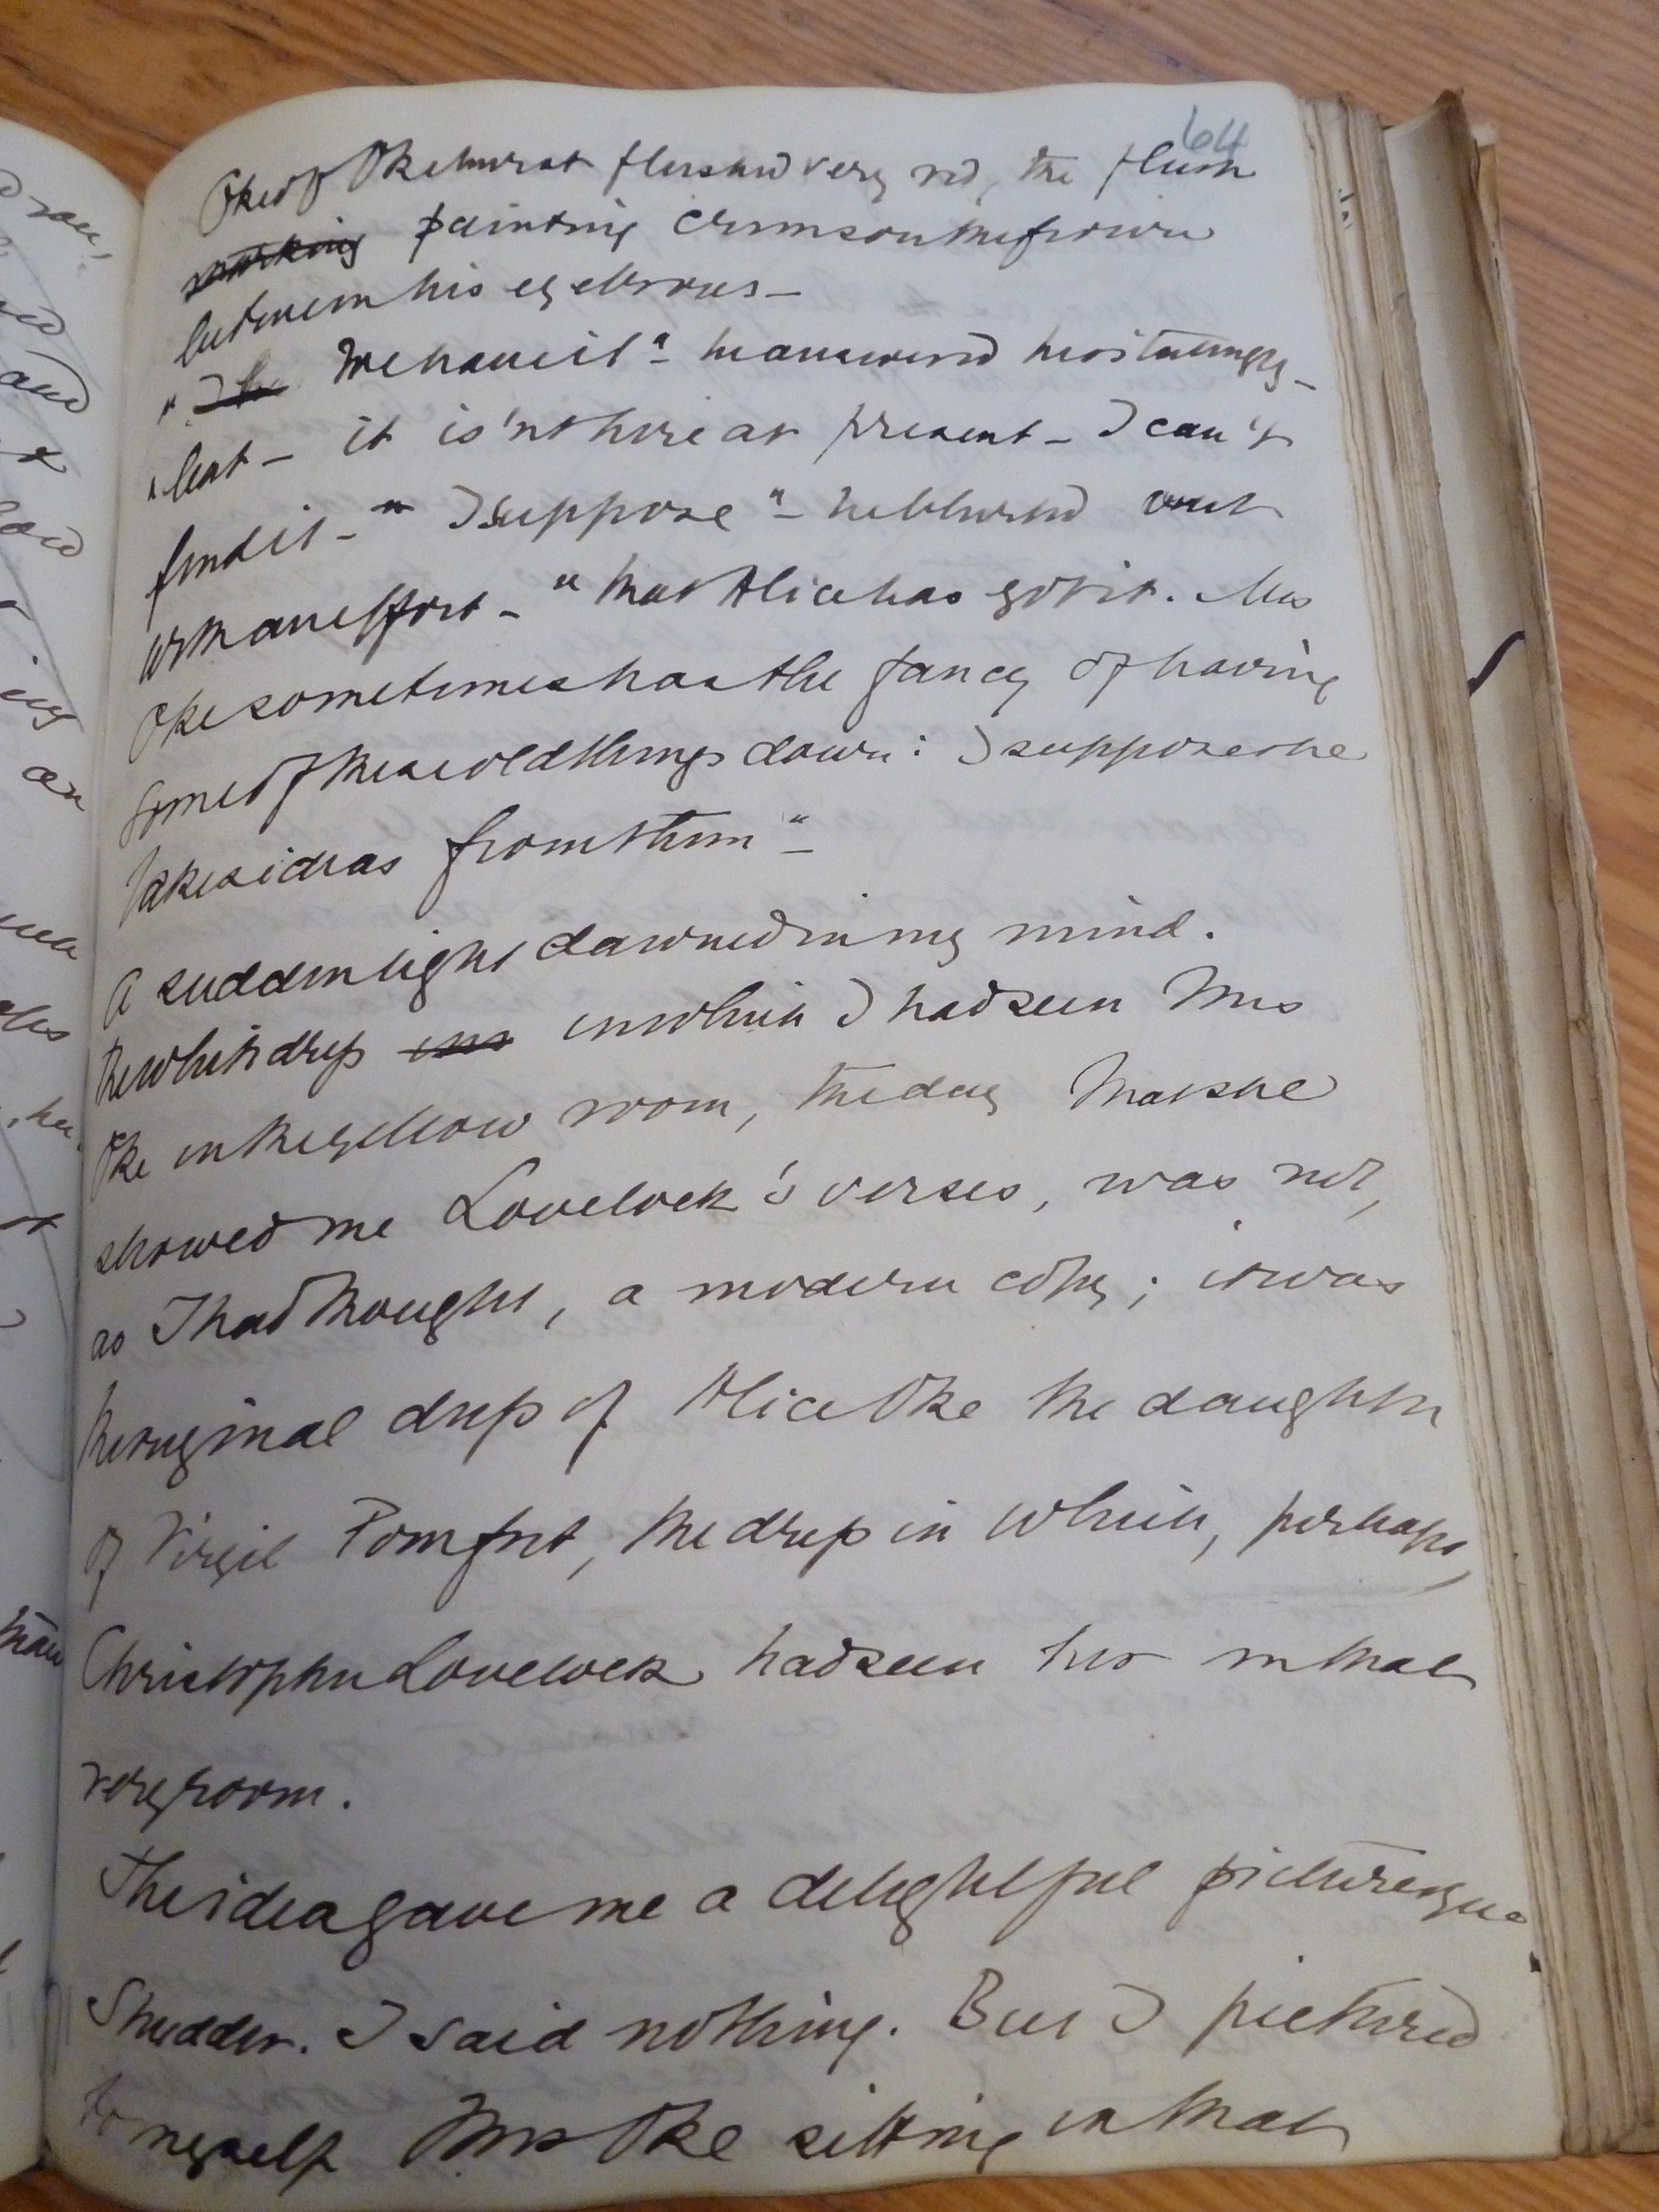 64
Oke of Okehurst flushed very red, the flush
marking painting crimson the frown
between his eyebrows –
"I he We have it" – he answered hesitatingly –
"but – it is'nt here at present – I can't
find it – " I suppose" – he blurted out
with an effort – "that Alice has got it. Mrs
Oke sometimes has the fancy of having
some of these old things down: I suppose she
takes ideas from them" –
A sudden light dawned in my mind.
The white dress in which I had seen Mrs
Oke in the yellow room, the day that she
showed me Lovelock's verses, was not,
as I had thought, a modern copy; it was
the original dress of Alice Oke the daughter
of Virgil Pomfret, the dress in which, perhaps,
Christopher Lovelock had seen her in that
very room.
The idea gave me a delightful picturesque
Shudder. I said nothing. But I pictured
to myself Mrs Oke sitting in that